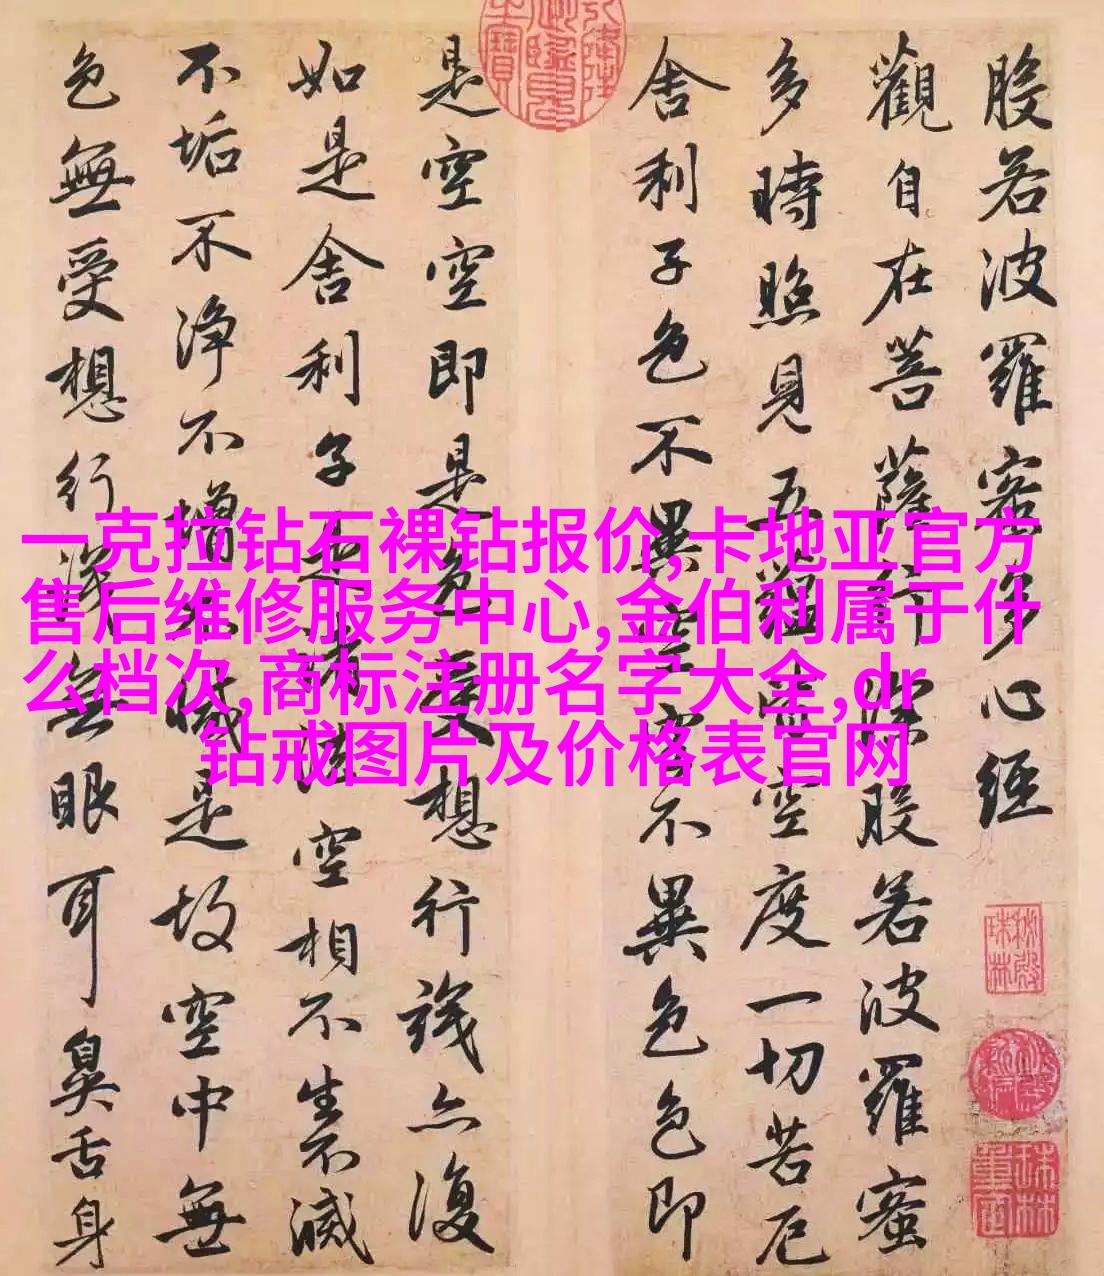 般若波羅蜜多心經
觀自在菩薩行深般若波羅蜜
多時照見五蘊皆空度一切苦厄
舍利子色不異空空不異色色即
是空空即是色受想行識亦復
如是舍利子是諸法空相不生不滅
不垢不淨不增不減是故空中無
色無受想行識無眼耳鼻舌身
秘殿珠林
一克拉钻石裸钻报价,卡地亚官方
售后维修服务中心,金伯利属于什
么档次,商标注册名字大全,dr
钻戒图片及价格表官网